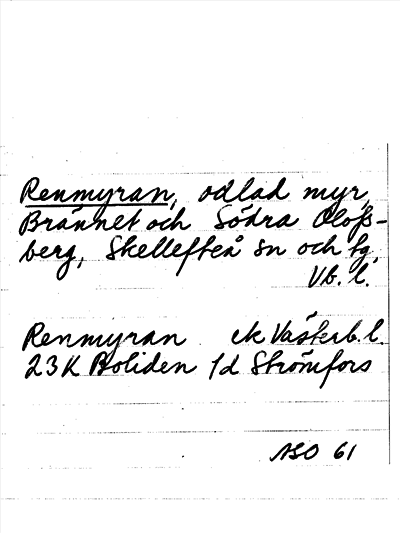 Renmyran, odlad myr,
Brännet och Södra Olofs-
berg, Skellefteå sn och tg,
Vb. l.
Renmyran ek Västerb. l.
23K Boliden 1d Strömfors
ASO 61